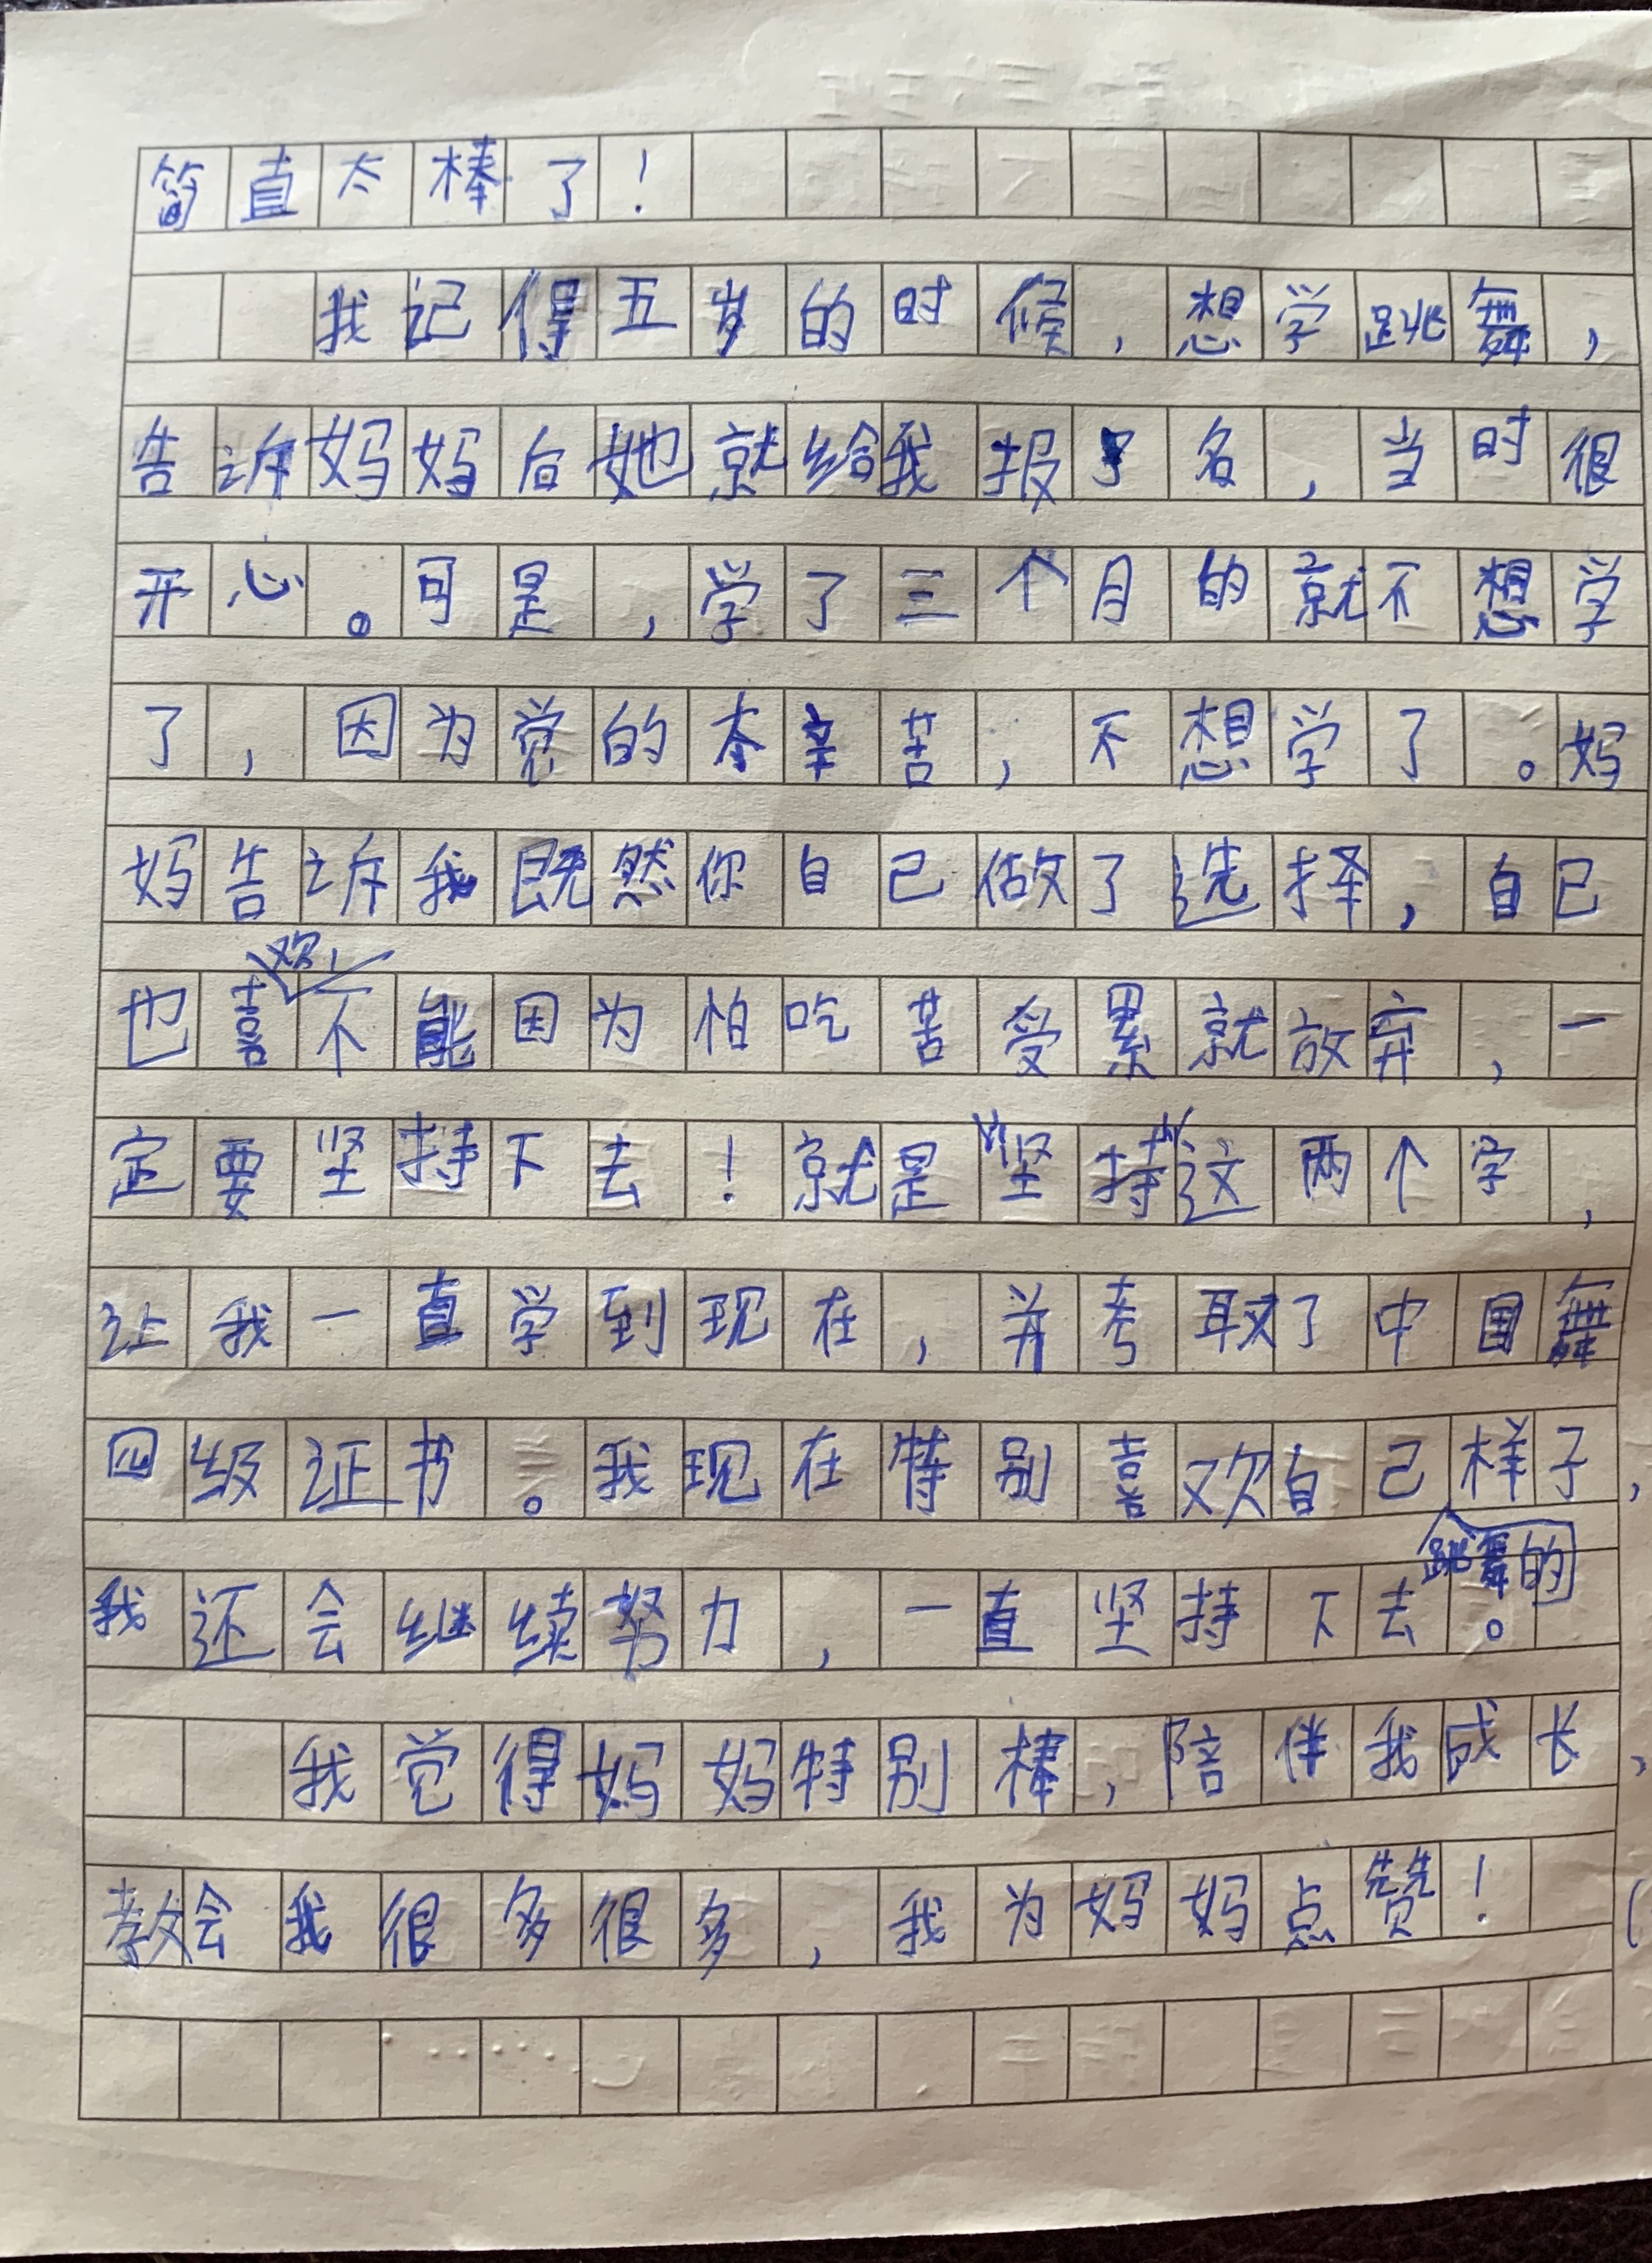 简直太棒了！
我记得五岁的时候，想学跳舞，
告诉妈妈后她就给我报了名，当时很
开心。可是，学了三个月的就不想学
了，因为觉的太辛苦，不想学了。妈
妈告诉我既然你自己做了选择，自己
也喜欢，不能因为怕吃苦受累就放弃，一
定要坚持下去！就是“坚持”这两个字，
让我一直学到现在，并考取了中国舞
四级证书。我现在特别喜欢自己跳舞的样子，
我还会继续努力，一直坚持下去。
我觉得妈妈特别棒，陪伴我成长，
教会我很多很多，我为妈妈点赞！